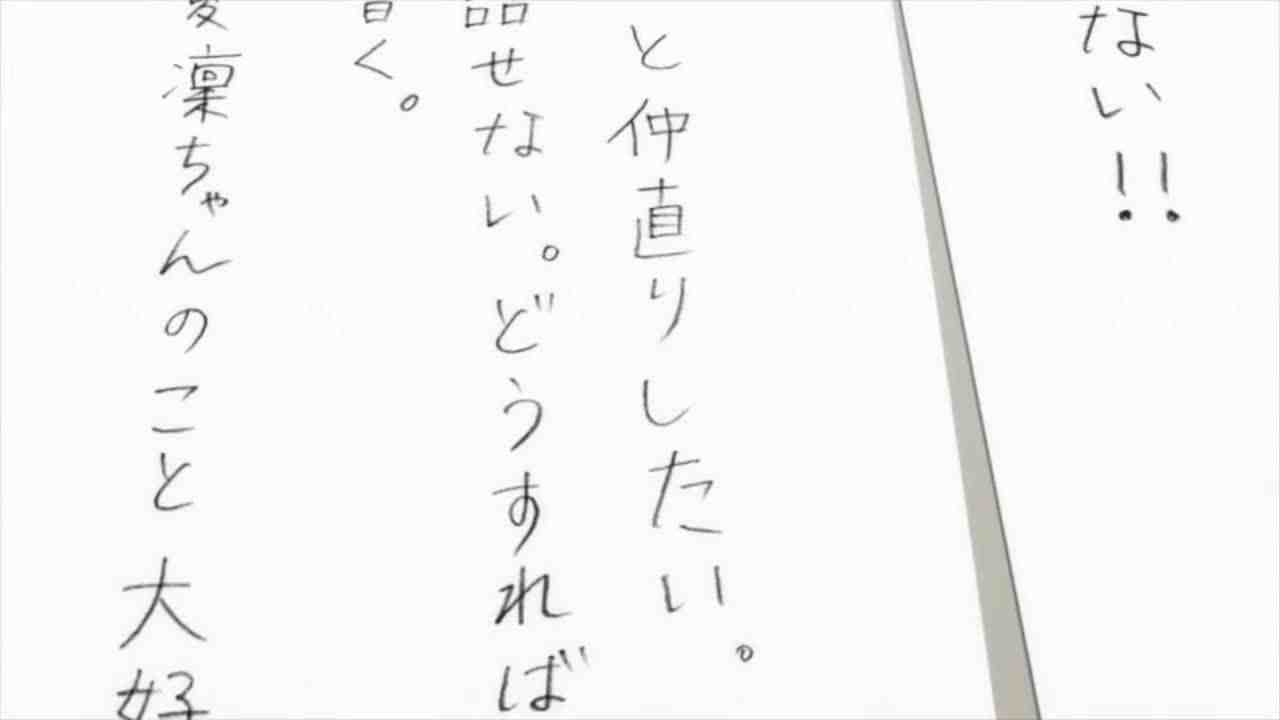 ない!!
と仲直りしたい。
話せない。どうすれば
書く。
愛凜ちゃんのこと大好